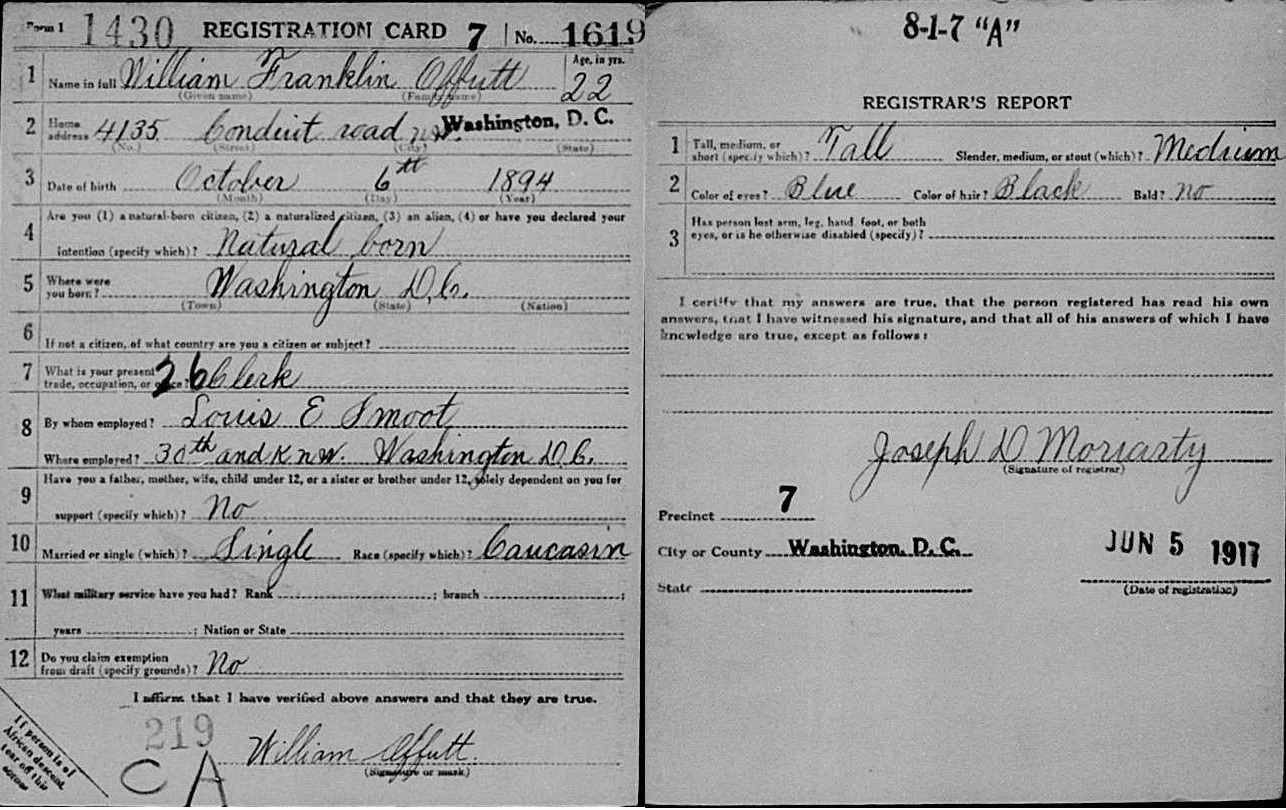 Form 1 1430 REGISTRATION CARD 7 No. 1619
Age, in yrs.
1 Name in full William Franklin Offutt 22
(Given name) (Family name)
2 Home address 4135 Conduit road nw. Washington, D. C.
(No.) (Street) (City) (State)
3 Date of birth October 6th 1894
(Month) (Day) (Year)
Are you (1) a natural-born citizen, (2) a naturalized citizen, (3) an alien, (4) or have you declared your
4 intention (specify which)? Natural born
5 Where were you born? Washington D.C.
(Town) (State) (Nation)
6 If not a citizen, of what country are you a citizen or subject?
7 What is your present trade, occupation, or office? 26 Clerk
8 By whom employed? Louis E Smoot
Where employed? 30th and K nw. Washington D.C.
9 Have you a father, mother, wife, child under 12, or a sister or brother under 12, solely dependent on you for
support (specify which)? No
10 Married or single (which)? Single Race (specify which)? Caucasin
11 What military service have you had? Rank ; branch ;
years ; Nation or State
12 Do you claim exemption from draft (specify grounds)? No
I affirm that I have verified above answers and that they are true.
219
C A William Offutt.
(Signature or mark)
If person is of
African descent,
tear off this
corner
8-1-7 "A"
REGISTRAR'S REPORT
1 Tall, medium, or short (specify which)? Tall Slender, medium, or stout (which)? Medium
2 Color of eyes? Blue Color of hair? Black Bald? No
3 Has person lost arm, leg, hand, foot, or both
eyes, or is he otherwise disabled (specify)?
I certify that my answers are true, that the person registered has read his own
answers, that I have witnessed his signature, and that all of his answers of which I have
knowledge are true, except as follows:
Joseph D Moriarty
(Signature of registrar)
Precinct 7
City or County Washington, D. C. JUN 5 1917
State (Date of registration)